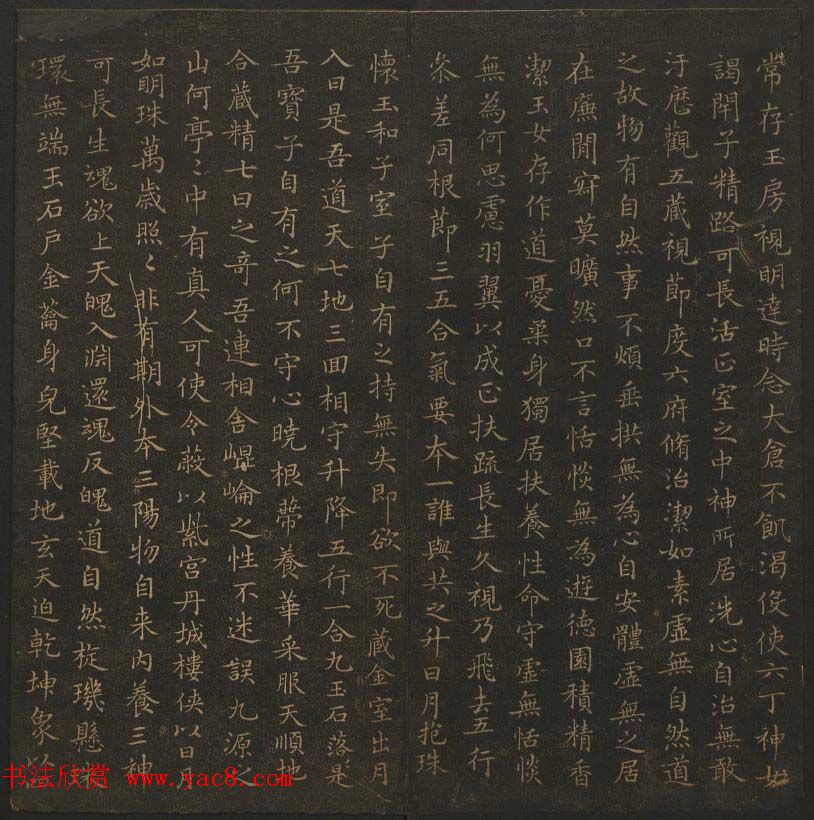 常存玉房視明達時念大倉不飢渴役使六丁神女
謁閇子精路可長活正室之中神所居洗心自治無敢
汙歷觀五藏視節度六府脩治潔如素虛無自然道
之故物有自然事不煩垂拱無為心自安體虛無之居
在廉閒寂莫曠然口不言恬惔無為遊德園積精香
潔玉女存作道憂柔身獨居扶養性命守虛無恬惔
無為何思慮羽翼以成正扶疏長生久視乃飛去五行
条差同根節三五合氣要本一誰與共之升日月抱珠
懷玉和子室子自有之持無失即欲不死藏金室出月
入日是吾道天七地三回相守升降五行一合九玉石落是
吾寶子自有之何不守心曉根蒂養華采服天順地
合藏精七日之奇吾連相舍崐崘之性不迷誤九源之
山何亭〻中有真人可使令蔽以紫宮丹城樓俠以日月
如明珠萬歲照〻非有期外本三陽物自来內養三神
可長生魂欲上天魄入淵還魂反魄道自然旋璣懸珠
環無端玉石戶金籥身皃堅載地玄天迫乾坤象以
书法欣赏 www.yac8.com